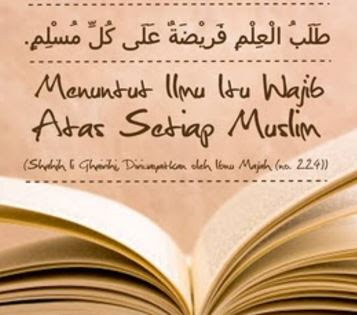 طَلَبُ الْعِلْمِ فَرِيْضَةٌ عَلَى كُلِّ مُسْلِمٍ.
Menuntut Ilmu Itu Wajib
Atas Setiap Muslim
(Shahih li Ghairihi, Diriwayatkan oleh Ibnu Majah (no. 224))